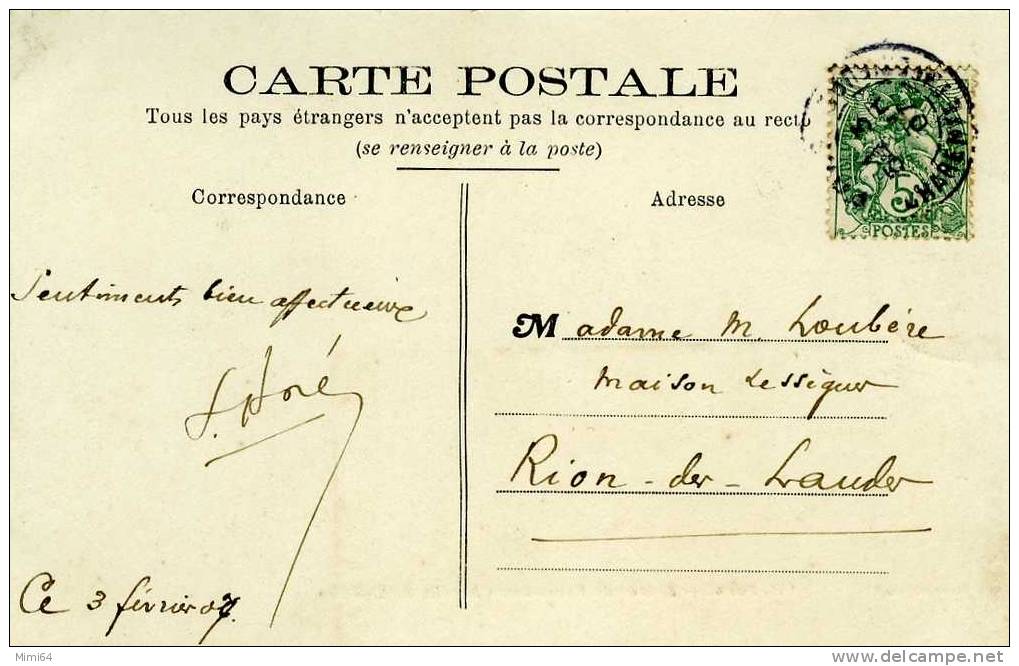 CARTE POSTALE
Tous les pays étrangers n'acceptent pas la correspondance au recto
(se renseigner à la poste)
Correspondance
Adresse
5
POSTES
Sentiments bien affectueux
Madame M. Loubère
Maison Lességue
Rion-des-Landes
Ce 3 février 07.
Mimi64
www.delcampe.net